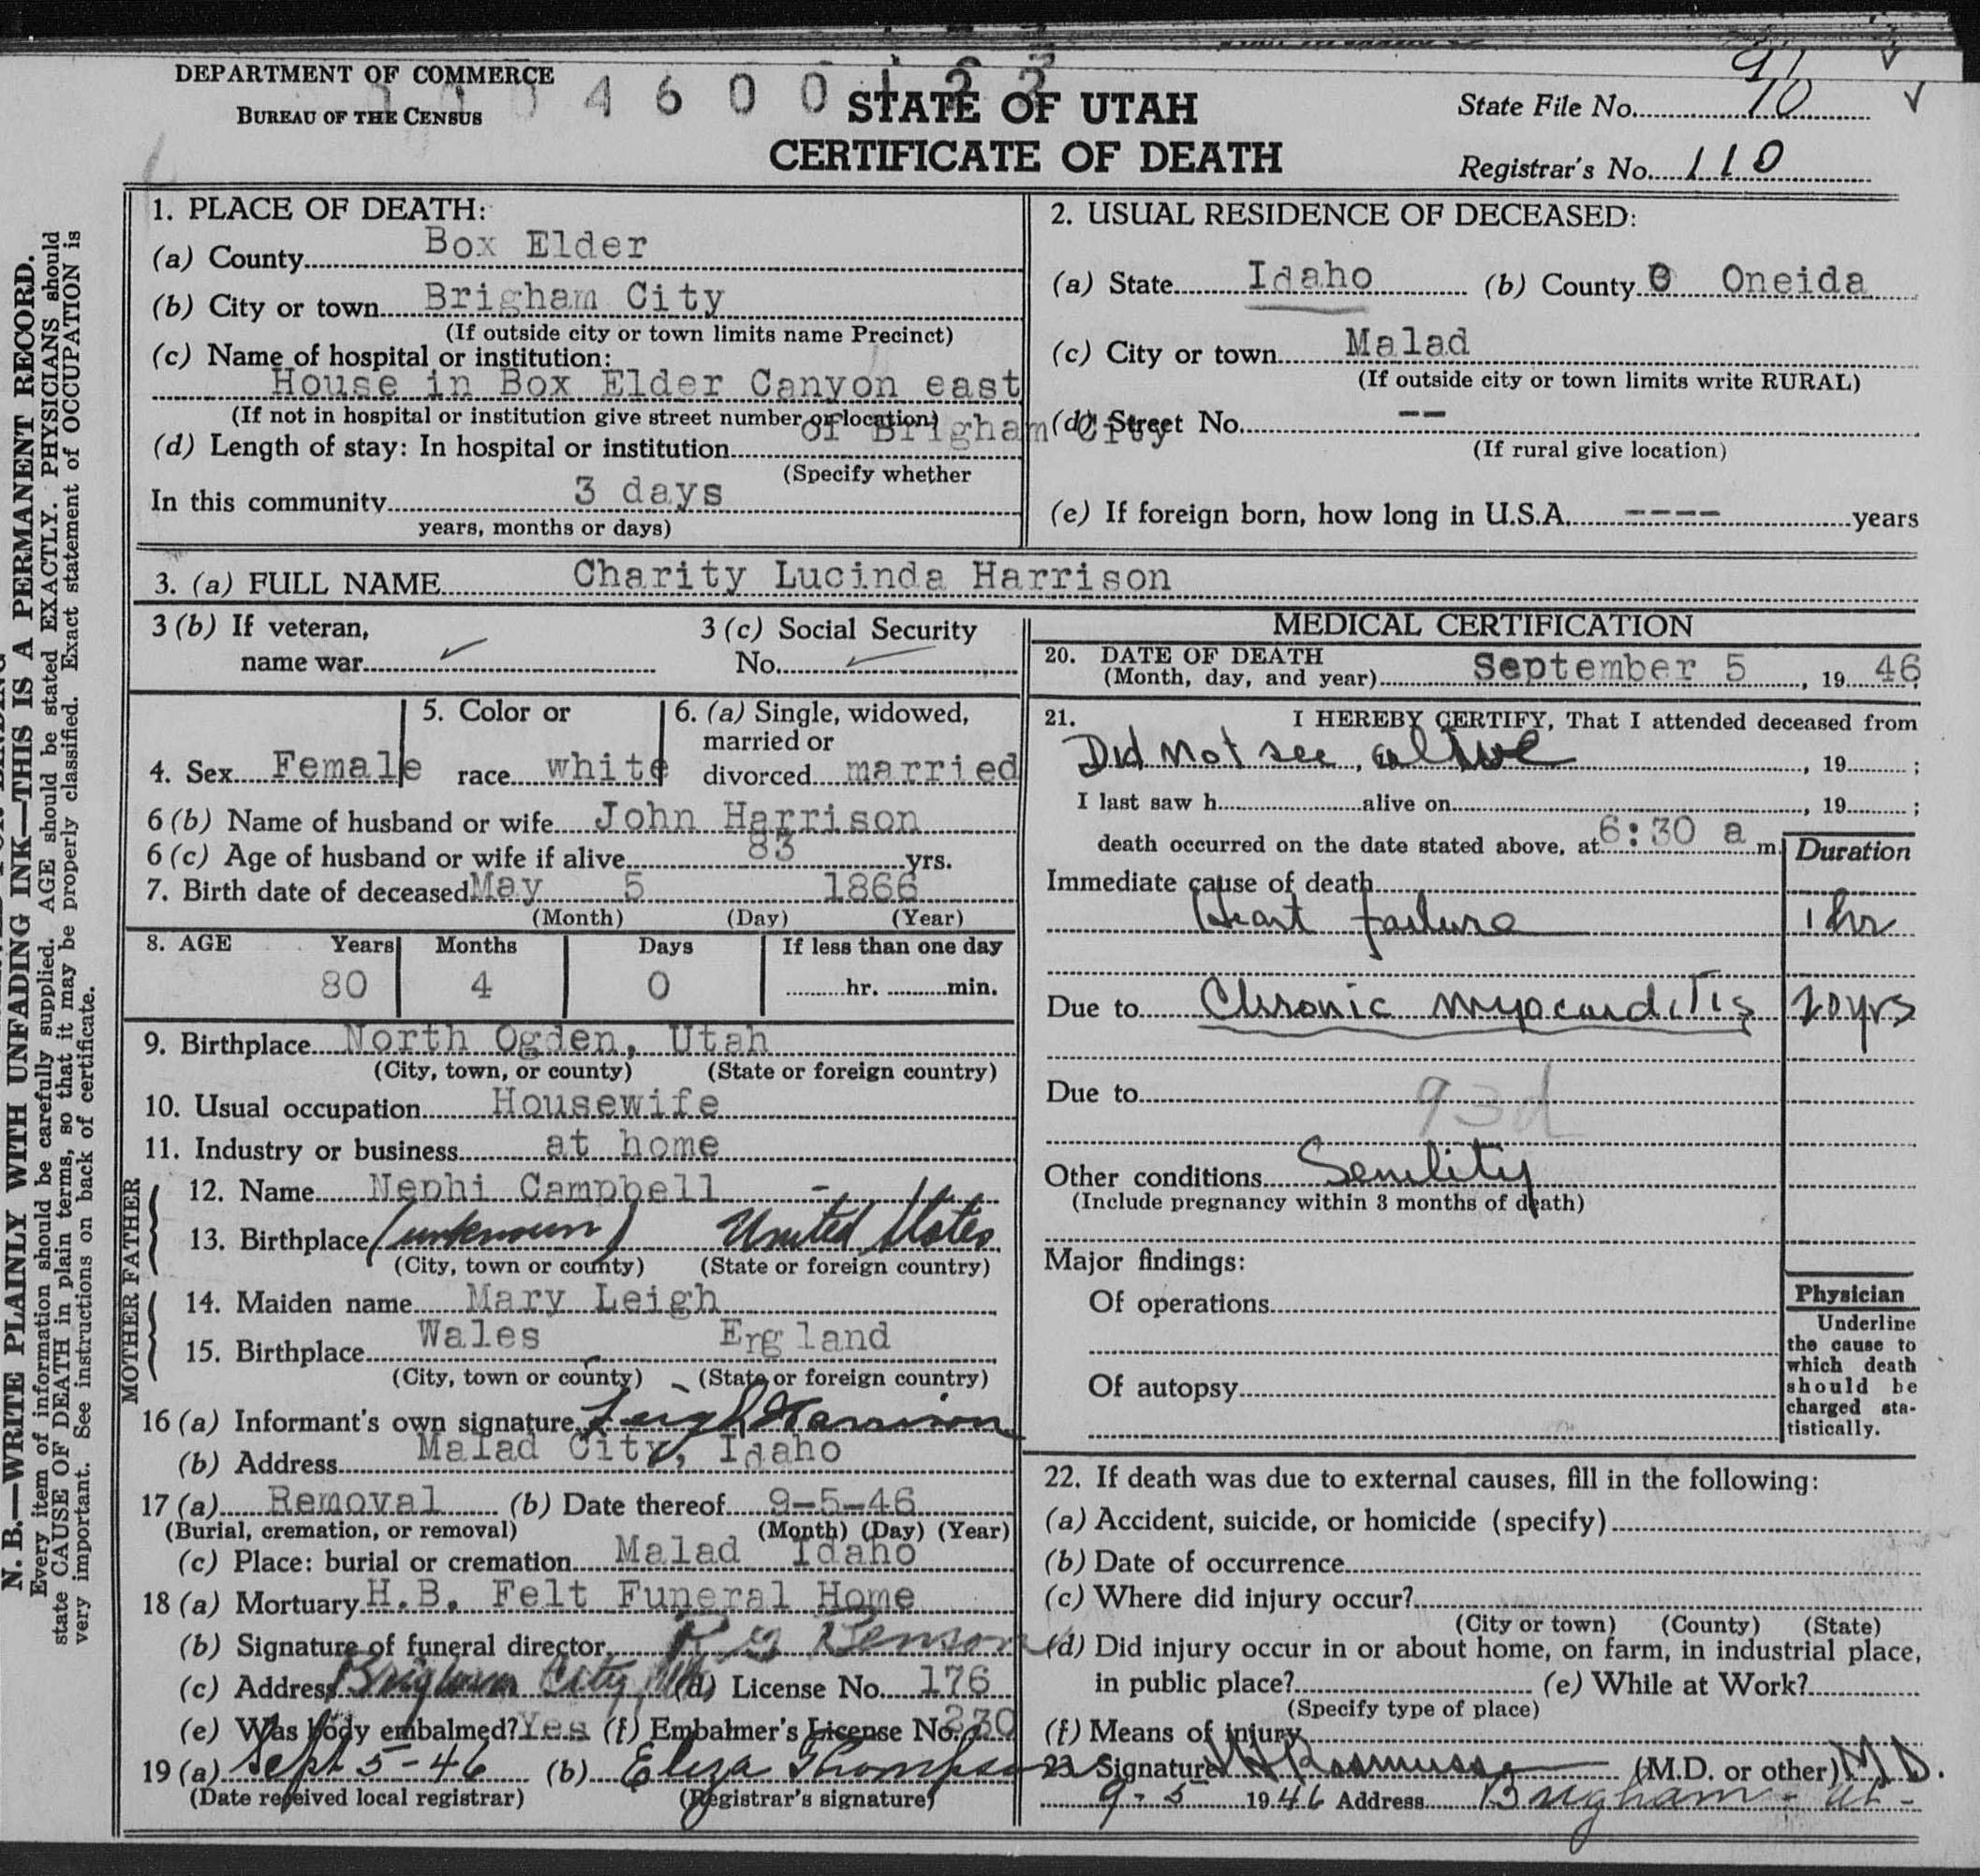 DEPARTMENT OF COMMERCE
BUREAU OF THE CENSUS
4 6 0 0 1 2 2
STATE OF UTAH
CERTIFICATE OF DEATH
State File No.
Registrar's No. 110
N. B.—WRITE PLAINLY WITH UNFADING INK—THIS IS A PERMANENT RECORD.
Every item of information should be carefully supplied. AGE should be stated EXACTLY. PHYSICIANS should
state CAUSE OF DEATH in plain terms, so that it may be properly classified. Exact statement of OCCUPATION is
very important. See instructions on back of certificate.
1. PLACE OF DEATH:
(a) County Box Elder
(b) City or town Brigham City
(If outside city or town limits name Precinct)
(c) Name of hospital or institution:
House in Box Elder Canyon east
(If not in hospital or institution give street number or location)
of Brigham City
(d) Length of stay: In hospital or institution
(Specify whether
In this community 3 days
years, months or days)
2. USUAL RESIDENCE OF DECEASED:
(a) State Idaho (b) County O Oneida
(c) City or town Malad
(If outside city or town limits write RURAL)
(d) Street No. --
(If rural give location)
(e) If foreign born, how long in U.S.A. ---- years
3. (a) FULL NAME Charity Lucinda Harrison
3 (b) If veteran,
name war ✓
3 (c) Social Security
No. ✓
4. Sex Female
5. Color or
race white
6. (a) Single, widowed,
married or
divorced married
6 (b) Name of husband or wife John Harrison
6 (c) Age of husband or wife if alive 83 yrs.
7. Birth date of deceased May 5 1866
(Month) (Day) (Year)
8. AGE Years Months Days If less than one day
80 4 0 hr. min.
9. Birthplace North Ogden, Utah
(City, town, or county) (State or foreign country)
10. Usual occupation Housewife
11. Industry or business at home
FATHER
12. Name Nephi Campbell -
13. Birthplace (unknown) United States
(City, town or county) (State or foreign country)
MOTHER
14. Maiden name Mary Leigh
15. Birthplace Wales Ergland
(City, town or county) (State or foreign country)
16 (a) Informant's own signature Leigh Harrison
(b) Address Malad City, Idaho
17 (a) Removal (b) Date thereof 9-5-46
(Burial, cremation, or removal) (Month) (Day) (Year)
(c) Place: burial or cremation Malad Idaho
18 (a) Mortuary H.B. Felt Funeral Home
(b) Signature of funeral director
(c) Address Brigham City, (d) License No. 176
(e) Was body embalmed? Yes (f) Embalmer's License No. 230
19 (a) Sept 5-46 (b) Eliza Thompson
(Date received local registrar) (Registrar's signature)
MEDICAL CERTIFICATION
20. DATE OF DEATH
(Month, day, and year) September 5, 19 46
21. I HEREBY CERTIFY, That I attended deceased from
Did not see alive, 19 ;
I last saw h alive on, 19 ;
death occurred on the date stated above, at 6:30 a m.
Duration
Immediate cause of death
Heart failure 1 hr
Due to Chronic myocarditis 20 yrs
Due to 93d
Other conditions Senility
(Include pregnancy within 3 months of death)
Major findings:
Of operations
Of autopsy
Physician
Underline
the cause to
which death
should be
charged sta-
tistically.
22. If death was due to external causes, fill in the following:
(a) Accident, suicide, or homicide (specify)
(b) Date of occurrence
(c) Where did injury occur?
(City or town) (County) (State)
(d) Did injury occur in or about home, on farm, in industrial place,
in public place? (e) While at Work?
(Specify type of place)
(f) Means of injury
23. Signature Rasmussen (M.D. or other) M.D.
9-5 1946 Address Brigham - Ut -